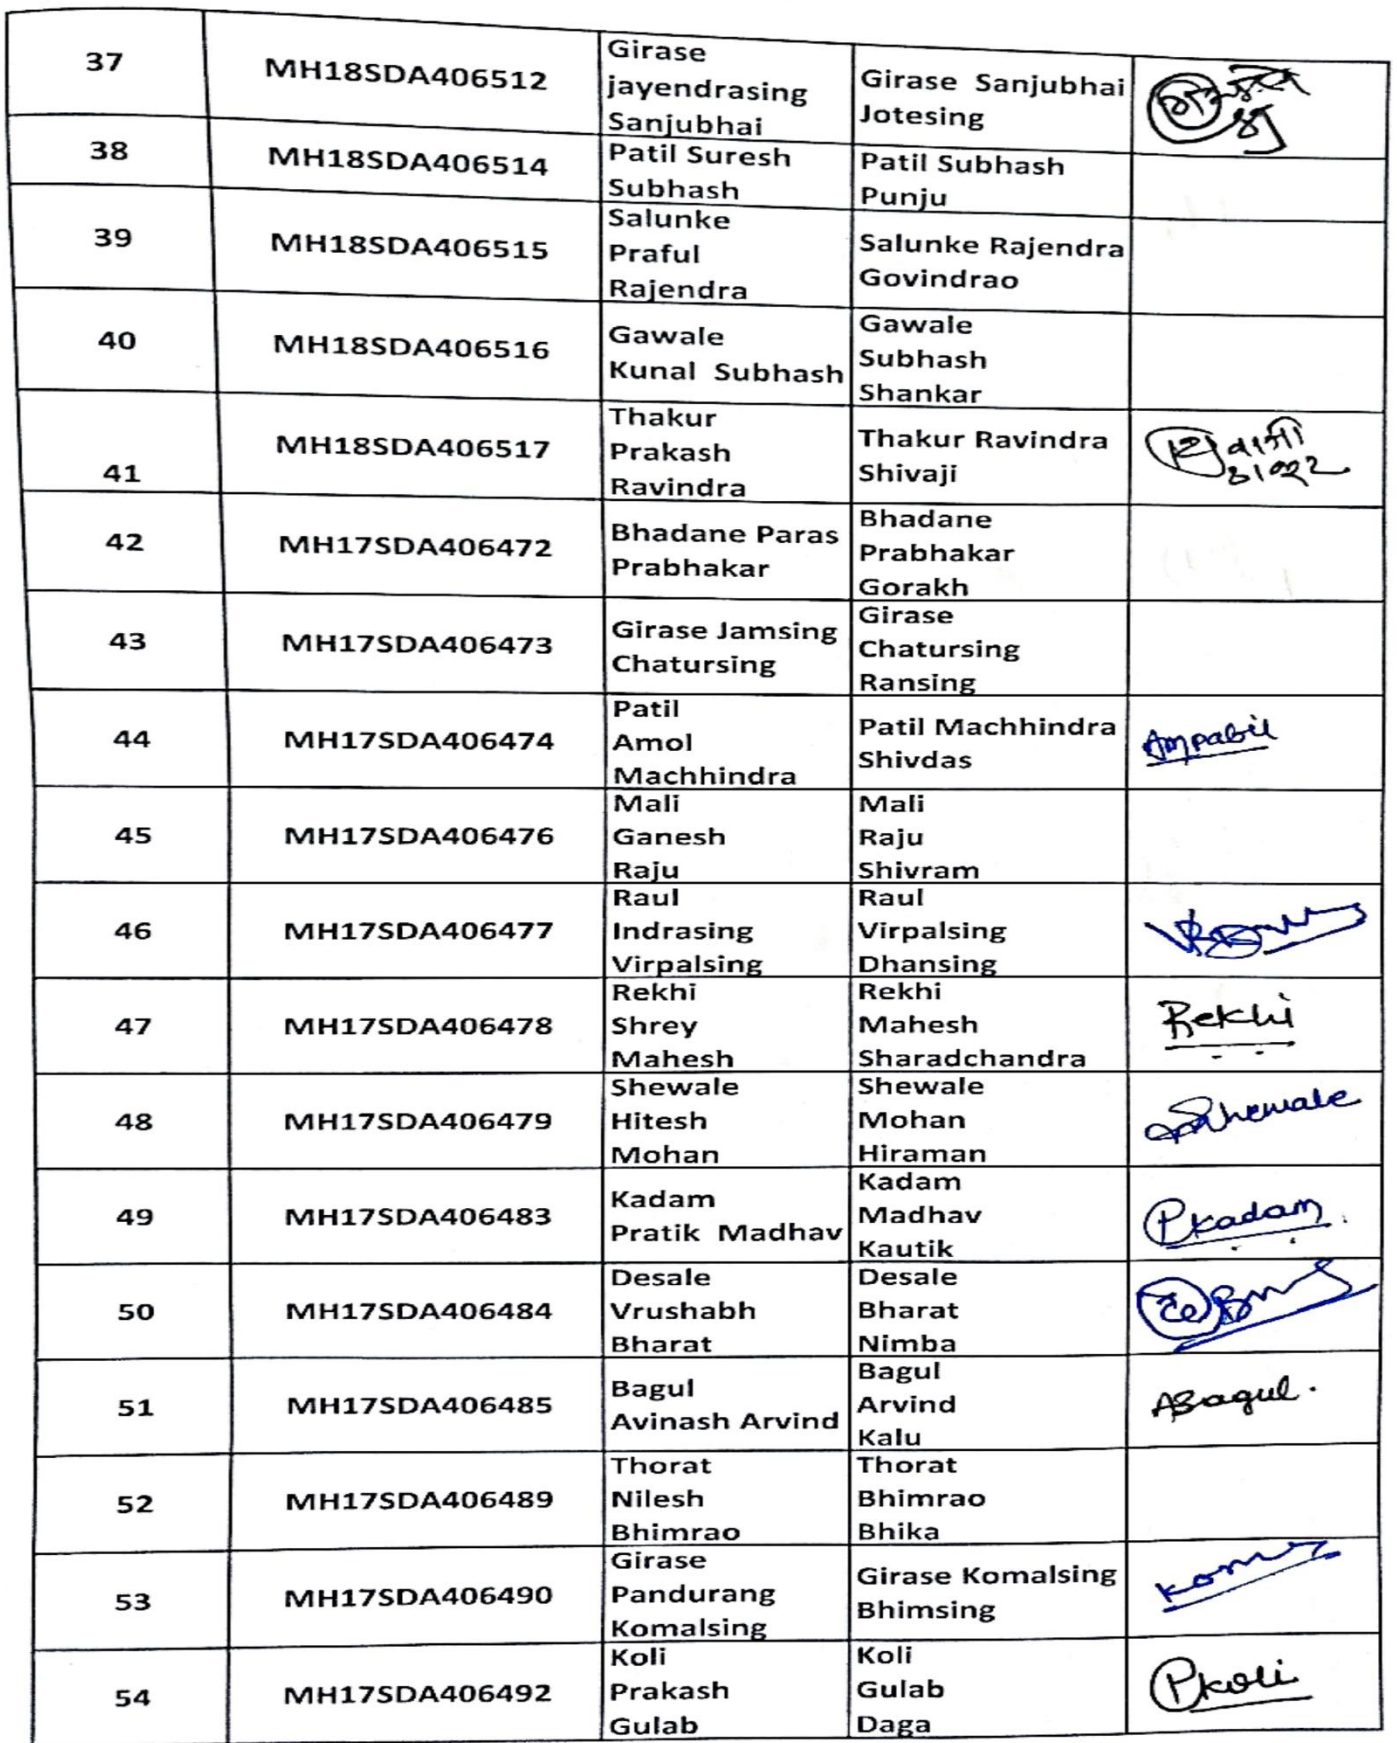 37
MH18SDA406512
Girase
jayendrasing
Sanjubhai
Girase Sanjubhai
Jotesing
38
MH18SDA406514
Patil Suresh
Subhash
Patil Subhash
Punju
39
MH18SDA406515
Salunke
Praful
Rajendra
Salunke Rajendra
Govindrao
40
MH18SDA406516
Gawale
Kunal Subhash
Gawale
Subhash
Shankar
41
MH18SDA406517
Thakur
Prakash
Ravindra
Thakur Ravindra
Shivaji
42
MH17SDA406472
Bhadane Paras
Prabhakar
Bhadane
Prabhakar
Gorakh
43
MH17SDA406473
Girase Jamsing
Chatursing
Girase
Chatursing
Ransing
44
MH17SDA406474
Patil
Amol
Machhindra
Patil Machhindra
Shivdas
45
MH17SDA406476
Mali
Ganesh
Raju
Mali
Raju
Shivram
46
MH17SDA406477
Raul
Indrasing
Virpalsing
Raul
Virpalsing
Dhansing
47
MH17SDA406478
Rekhi
Shrey
Mahesh
Rekhi
Mahesh
Sharadchandra
Rekhi
48
MH17SDA406479
Shewale
Hitesh
Mohan
Shewale
Mohan
Hiraman
Shewale
49
MH17SDA406483
Kadam
Pratik Madhav
Kadam
Madhav
Kautik
Pkadam
50
MH17SDA406484
Desale
Vrushabh
Bharat
Desale
Bharat
Nimba
51
MH17SDA406485
Bagul
Avinash Arvind
Bagul
Arvind
Kalu
ABagul.
52
MH17SDA406489
Thorat
Nilesh
Bhimrao
Thorat
Bhimrao
Bhika
53
MH17SDA406490
Girase
Pandurang
Komalsing
Girase Komalsing
Bhimsing
54
MH17SDA406492
Koli
Prakash
Gulab
Koli
Gulab
Daga
Pkoli